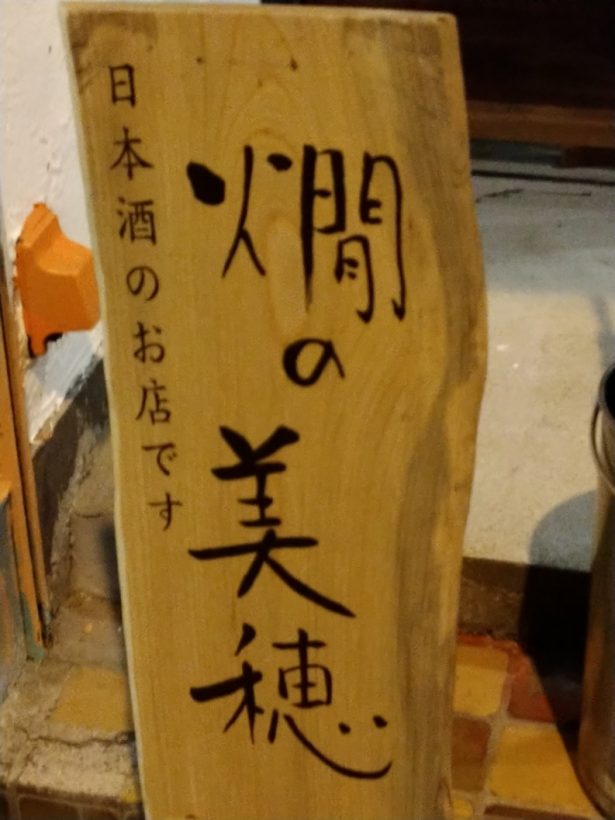 燗の美穂
日本酒のお店です